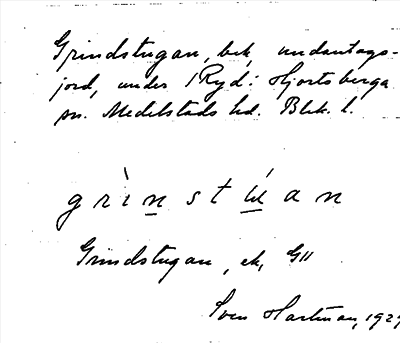 Grindstugan, bek, undantags-
jord, under 1 Ryd i Hjortsberga
sn. Medelstads hd. Blek. l.
grìn̲st ú̲an
Grindstugan, ek, GII
Sven Hartman, 192